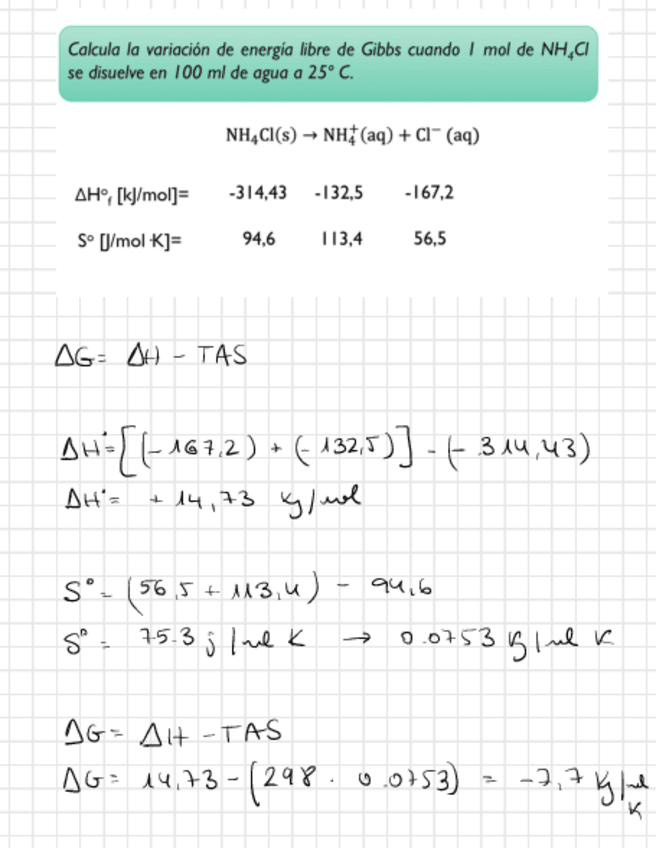 Calcula la variación de energía libre de Gibbs cuando 1 mol de NH₄Cl
se disuelve en 100 ml de agua a 25° C.
NH₄Cl(s) → NH₄⁺(aq) + Cl⁻ (aq)
ΔH°f [kJ/mol]= -314,43 -132,5 -167,2
S° [J/mol·K]= 94,6 113,4 56,5
ΔG = ΔH - TΔS
ΔH° = [(-167,2) + (-132,5)] - (-314,43)
ΔH° = + 14,73 kj/mol
S° = (56,5 + 113,4) - 94,6
S° = 75.3 j/mol K → 0.0753 kj/mol K
ΔG = ΔH - TΔS
ΔG = 14,73 - (298 · 0.0753) = -7,7 kj/mol K